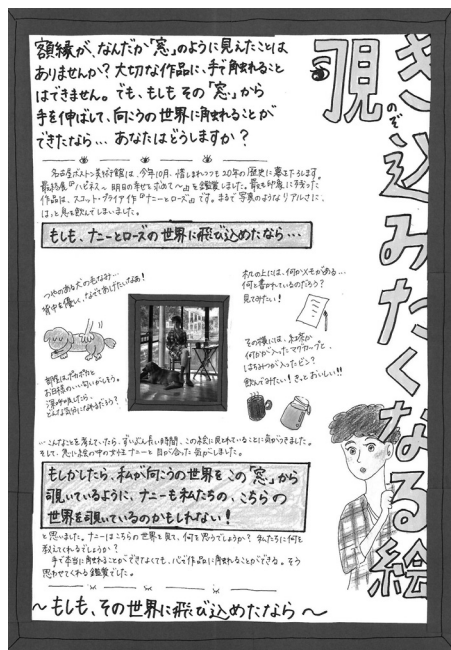 覗き込みたくなる絵
のぞ
額縁が、なんだか「窓」のように見えたことは
ありませんか？大切な作品に、手で触れること
はできません。でも、もしもその「窓」から
手を伸ばして、向こうの世界に触れることが
できたなら…あなたはどうしますか？
名古屋ボストン美術館は、今年10月、惜しまれつつも20年の歴史に幕を下ろします。
最終展『ハピネス～明日の幸せを求めて～』を鑑賞しました。最も印象に残った
作品は、スコット・プライア作『ナニーとローズ』です。まるで写真のようなリアルさに、
はっと息を飲んでしまいました。
もしも、ナニーとローズの世界に飛び込めたなら…
つやのある犬の毛なみ…
背中を優しくなでてあげたいなあ！
机の上には、何かメモがある…
何と書かれているのだろう？
見てみたい！
その横には、紅茶か
何かが入ったマグカップと、
はちみつが入ったビン？
飲んでみたい！きっとおいしい!!
部屋はポカポカと
お日様のいい匂いがしそう。
深呼吸したら、
どんな気分になれるだろう？
…こんなことを考えていたら、ずいぶん長い時間、この絵に見とれていることに気がつきました。
そして、思い絵の中の女性ナニーと目が合った気がしました。
もしかしたら、私が向こうの世界をこの「窓」から
覗いているように、ナニーも私たちの、こちらの
世界を覗いているのかもしれない！
と思いました。ナニーはこちらの世界を見て、何を思うでしょうか？私たちに何を
教えてくれるでしょうか？
手で本当に触れることができなくても、心で作品に触れることができる。そう
思わせてくれる鑑賞でした。
～もしも、その世界に飛び込めたなら～